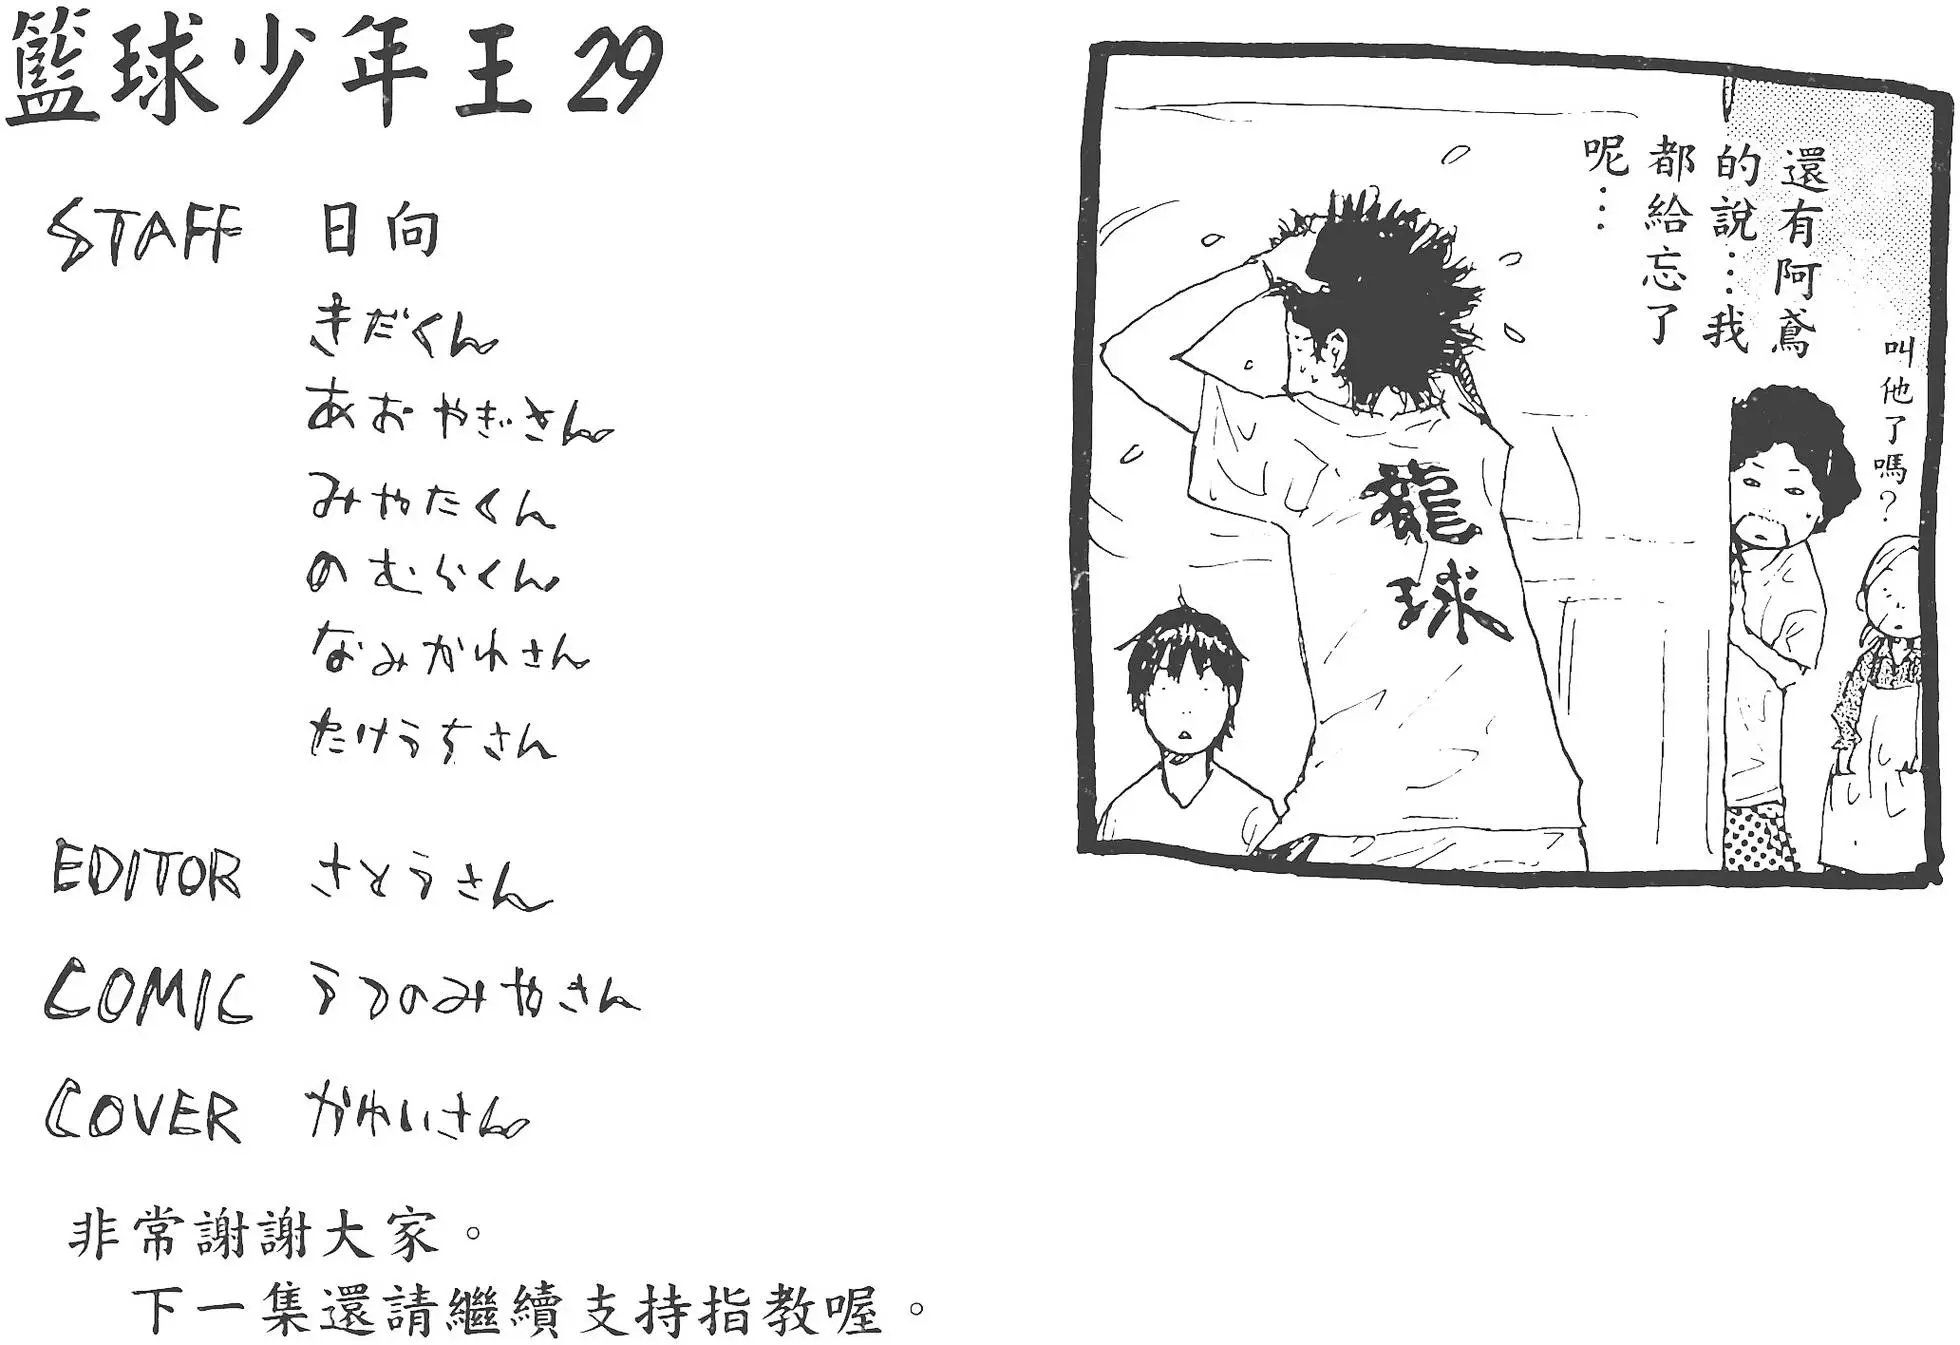 籃球少年王29
STAFF 日向
きだくん
あおやぎさん
みやたくん
のむらくん
なみかわさん
たけうちさん
EDITOR さとうさん
COMIC うつのみやさん
COVER かわいさん
非常謝謝大家。
下一集還請繼續支持指教喔。
還有阿鳶
的說…我
都給忘了
呢…
叫他了嗎？
龍球